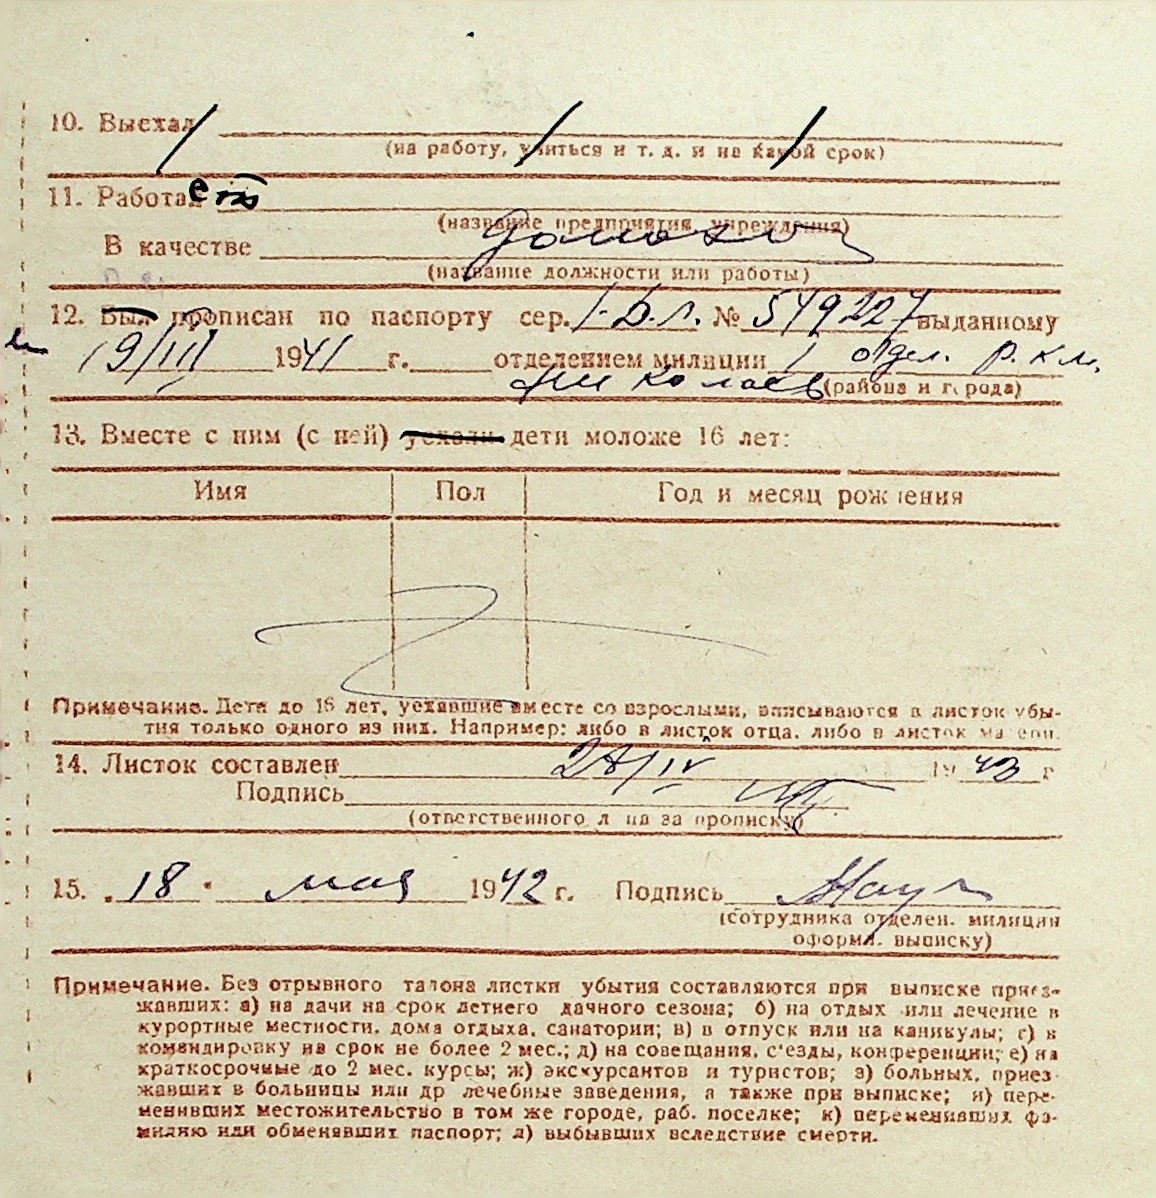 10. Выехал
(на работу, учиться и т. д. и на какой срок)
11. Работает
(название предприятия, учреждения)
В качестве домохоз
(название должности или работы)
12. Был прописан по паспорту сер. I-Б.Л. № 549227 выданному
19/III 1941 г. отделением милиции 1 отдел. Р.К.М.
Николаев (района и города)
13. Вместе с ним (с ней) уехали дети моложе 16 лет:
Имя Пол Год и месяц рождения
Примечание. Дети до 16 лет, уехавшие вместе со взрослыми, вписываются в листок убы-
тия только одного из них. Например: либо в листок отца, либо в листок матери.
14. Листок составлен 28/IV 1943 г
Подпись
(ответственного лица за прописку)
15. 18 мая 1942 г. Подпись
(сотрудника отделен. милиции
оформл. выписку)
Примечание. Без отрывного талона листки убытия составляются при выписке приез-
жавших: а) на дачи на срок летнего дачного сезона; б) на отдых или лечение в
курортные местности, дома отдыха, санатории; в) в отпуск или на каникулы; г) в
командировку на срок не более 2 мес.; д) на совещания, с'езды, конференции; е) на
краткосрочные до 2 мес. курсы; ж) экскурсантов и туристов; з) больных, приез-
жавших в больницы или др лечебные заведения, а также при выписке; и) пере-
менивших местожительство в том же городе, раб. поселке; к) переменивших фа-
милию или обменявших паспорт; л) выбывших вследствие смерти.